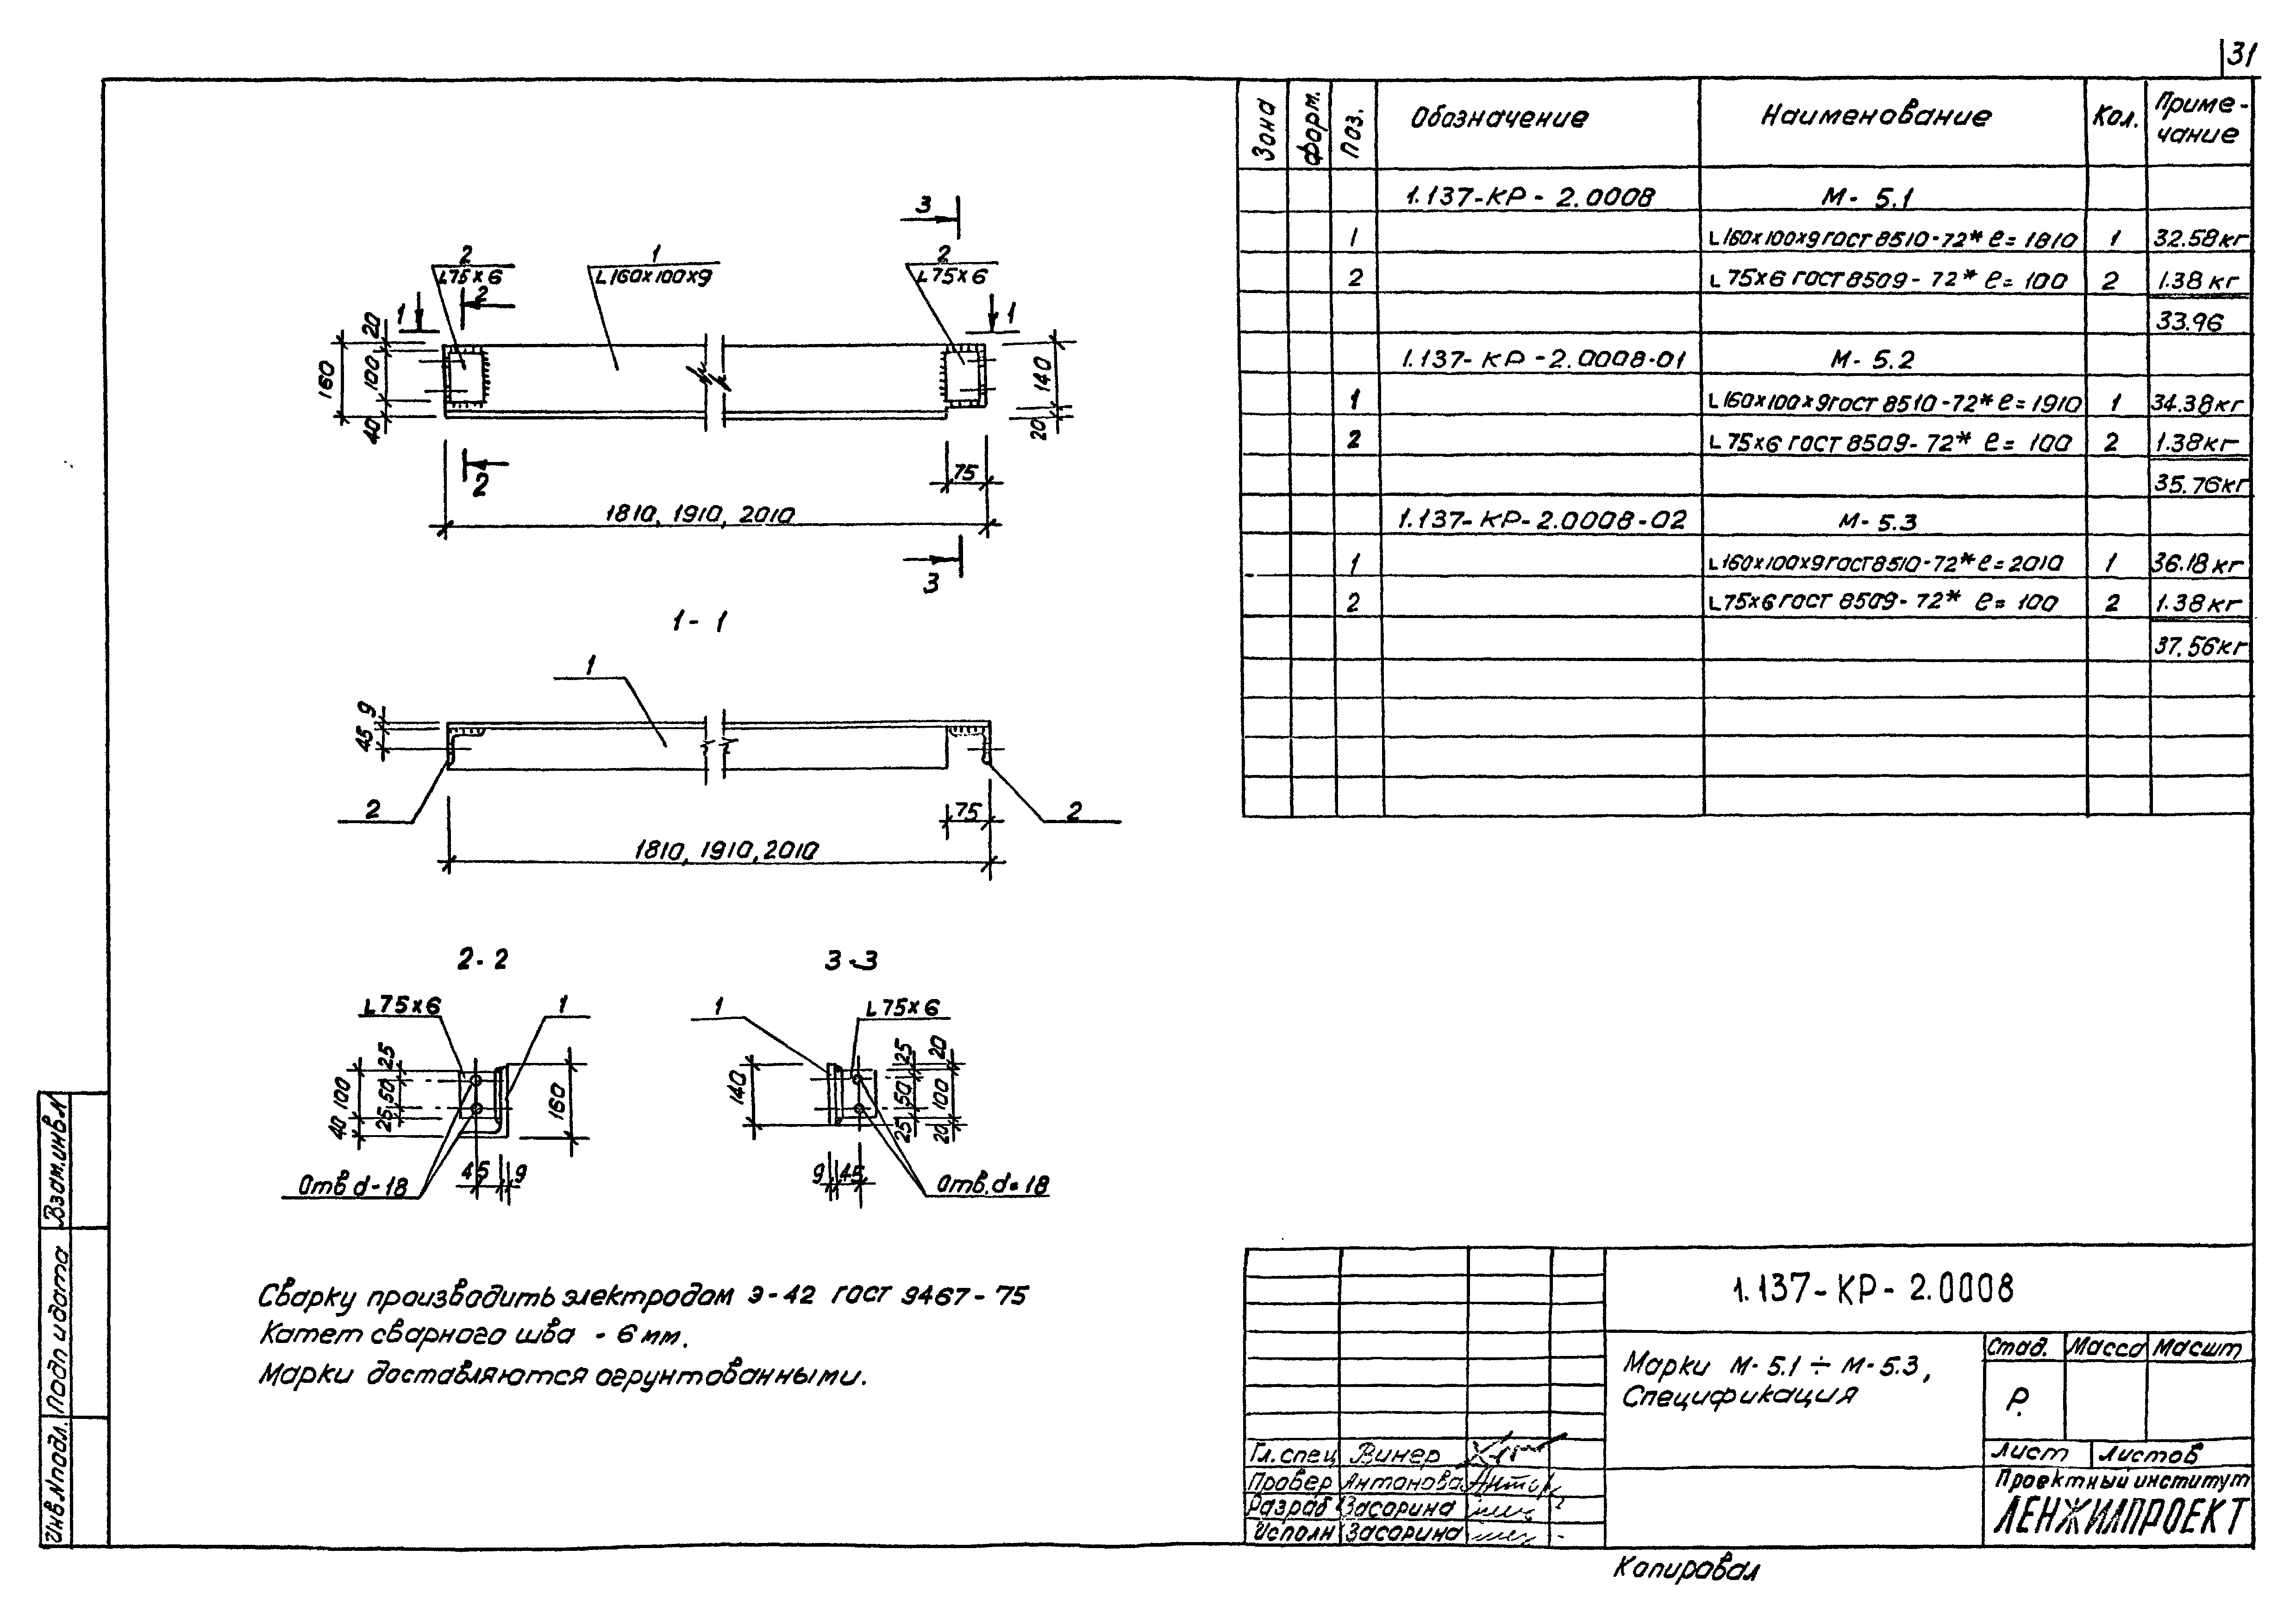 31
Зона Форм. Поз. Обозначение Наименование Кол. Приме-
чание
1.137-КР-2.0008 М-5.1
1 L160х100х9 ГОСТ 8510-72* ℓ=1810 1 32.58кг
2 L75х6 ГОСТ 8509-72* ℓ=100 2 1.38кг
33.96
1.137-КР-2.0008-01 М-5.2
1 L160х100х9 ГОСТ 8510-72* ℓ=1910 1 34.38кг
2 L75х6 ГОСТ 8509-72* ℓ=100 2 1.38кг
35.76кг
1.137-КР-2.0008-02 М-5.3
1 L160х100х9 ГОСТ 8510-72* ℓ=2010 1 36.18кг
2 L75х6 ГОСТ 8509-72* ℓ=100 2 1.38кг
37.56кг
3
2 1 2
L75х6 L160х100х9 L75х6
2
1 1
20
160 100 140
40 20
2 75
1810, 1910, 2010
3
1-1
1
9
45
2 75 2
1810, 1910, 2010
2-2 3-3
L75х6 1 1 L75х6
25 25 20
100 50 160 140 50 100
40 25 25 20
45 9 9 45
Отв d-18 Отв. d=18
Сварку производить электродам Э-42 ГОСТ 9467-75
Катет сварного шва - 6 мм.
Марки доставляются огрунтованными.
Взам.инв.N
Подп и дата
Инв.Nподл.
1.137-КР-2.0008
Марки М-5.1÷М-5.3,
Спецификация
Стад. Масса Масшт
Р.
Лист Листов
Проектный институт
ЛЕНЖИЛПРОЕКТ
Гл.спец Винер
Провер Антонова
Разраб Засорина
Исполн Засорина
Копировал